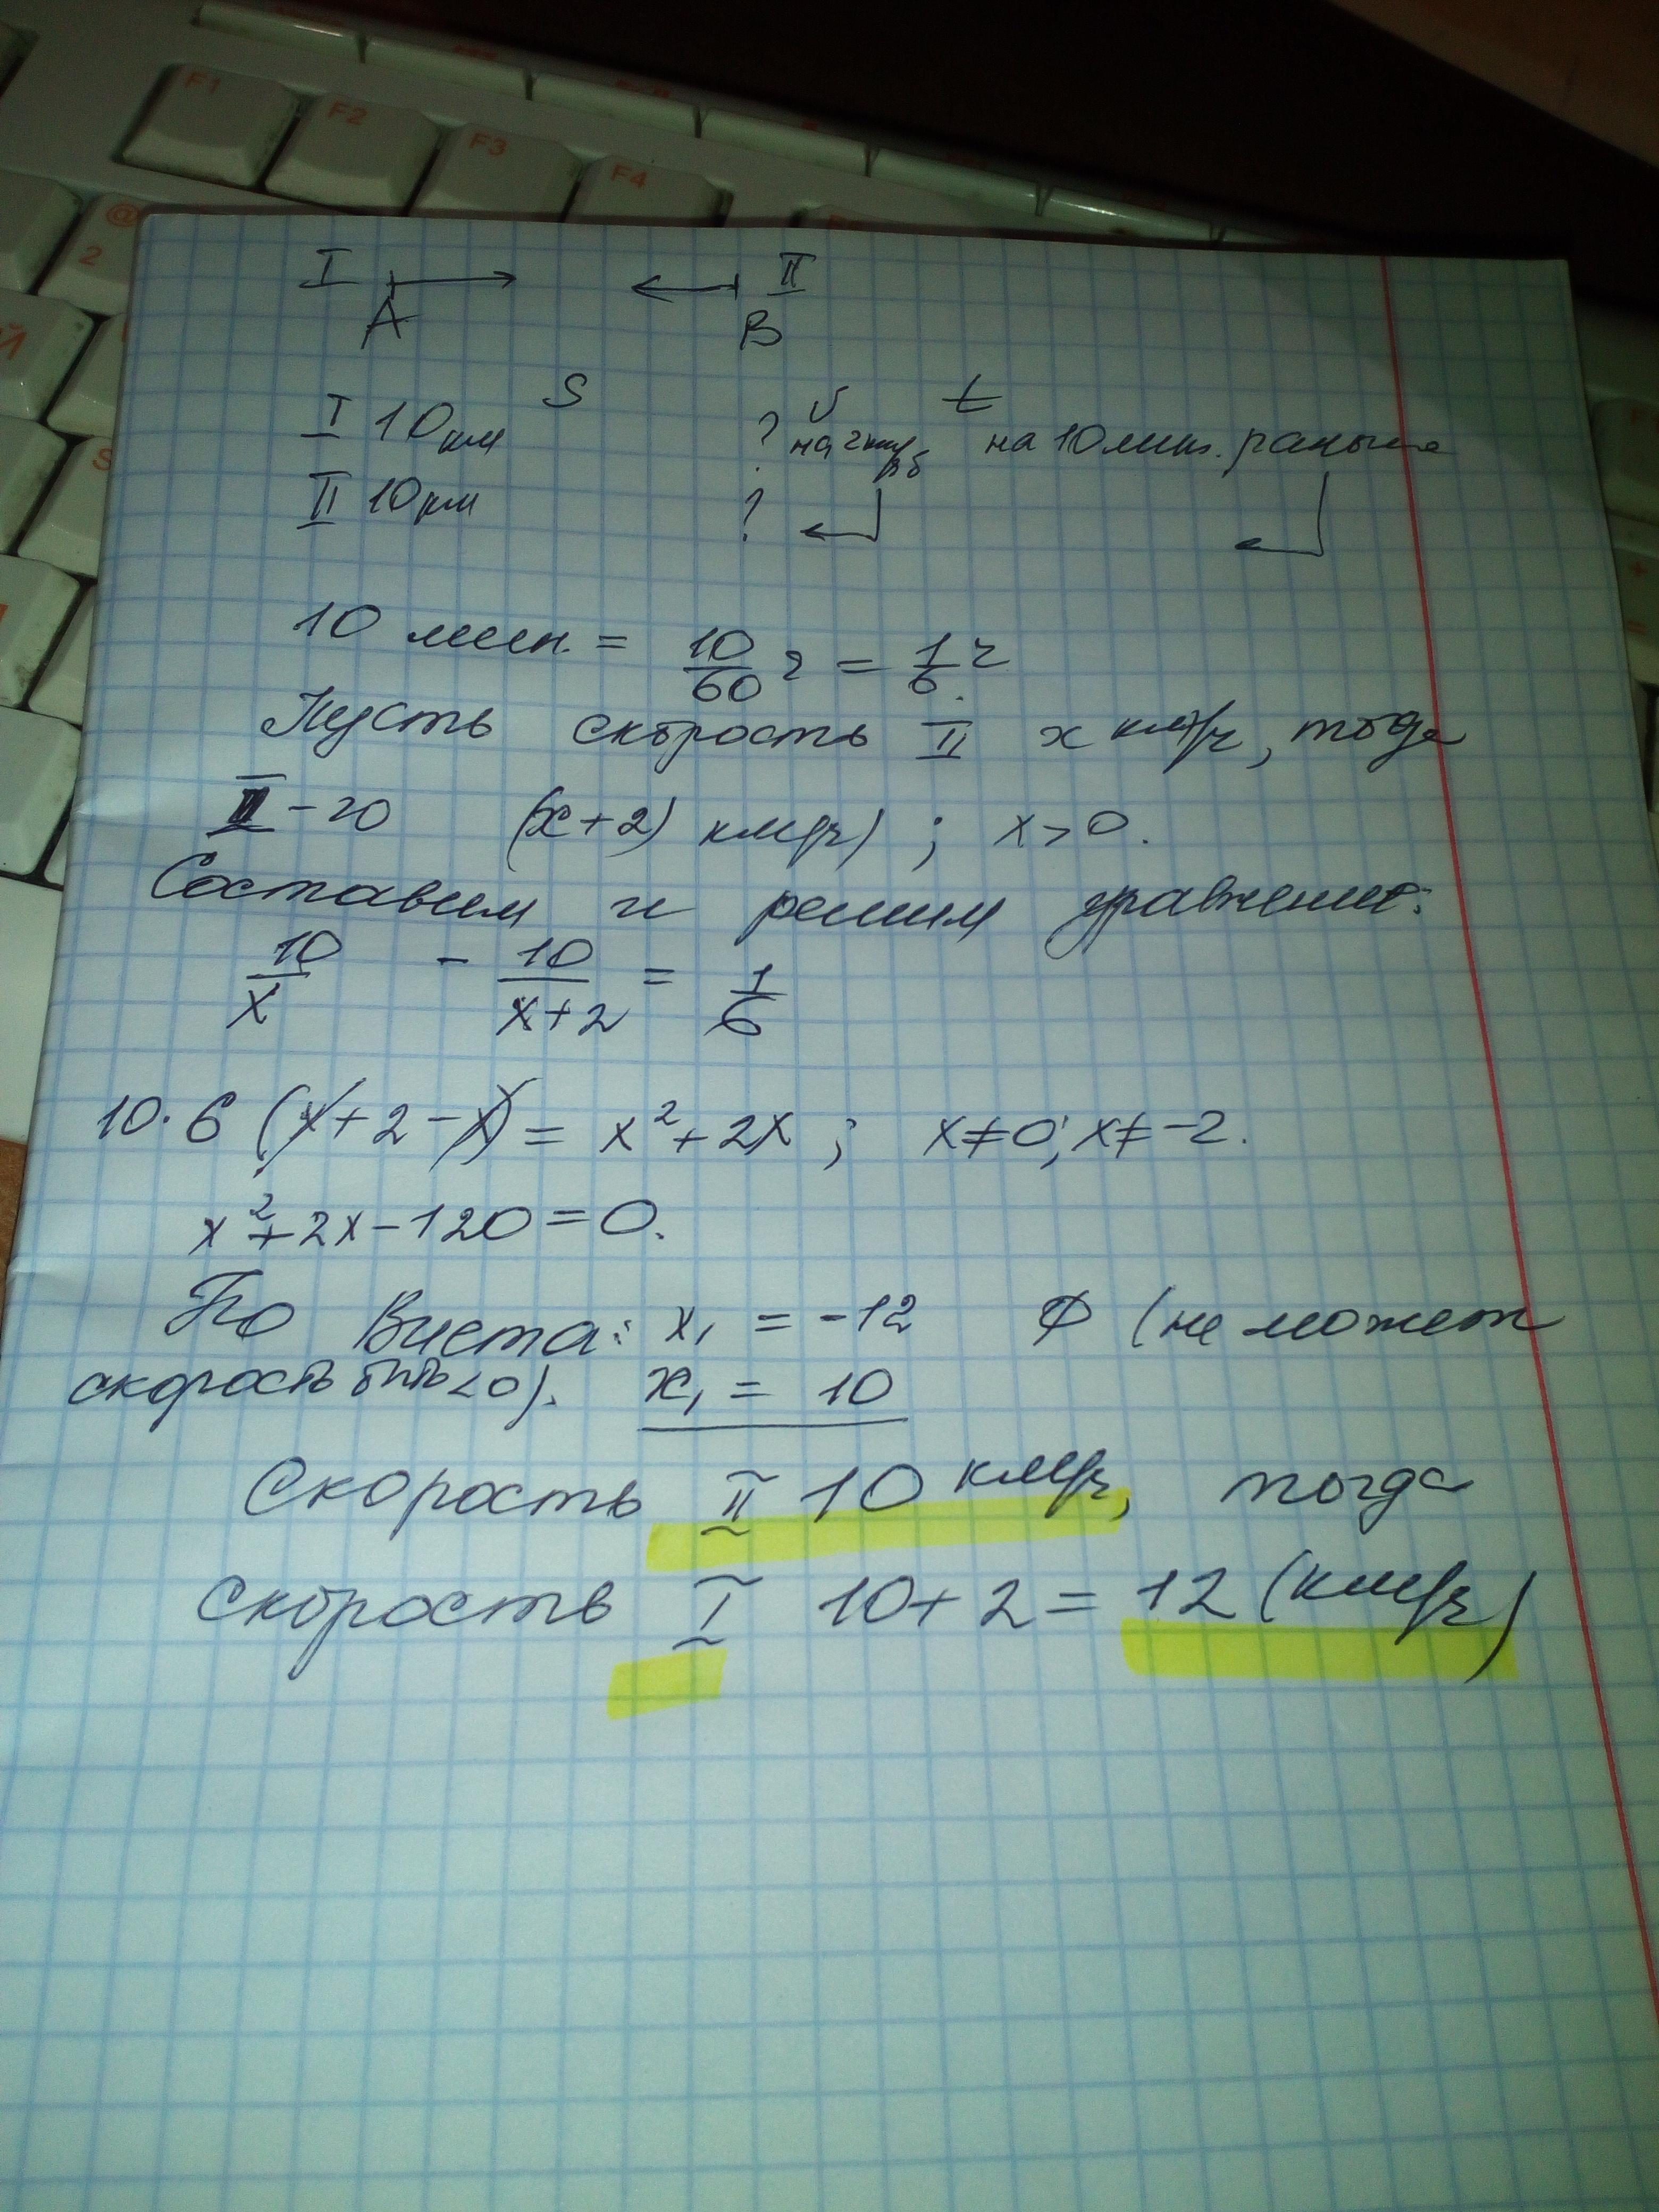 F1
F2
F3
F4
@
2
Й
S
I II
A B
S v t
I 10км ? на 2км/ч б на 10мин. раньше
II 10км ?
10 мин. = 10/60 ч = 1/6 ч
Пусть скорость II x км/ч, тогда
I-го (x+2) км/ч) ; x>0.
Составим и решим уравнение:
10/x - 10/x+2 = 1/6
10·6 (x+2-x) = x²+2x ; x≠0; x≠-2.
x²+2x-120=0.
По Виета: x₁ = -12 Ф (не может
скорость быть <0). x₁ = 10
Скорость II 10 км/ч, тогда
скорость I 10+2=12 (км/ч)